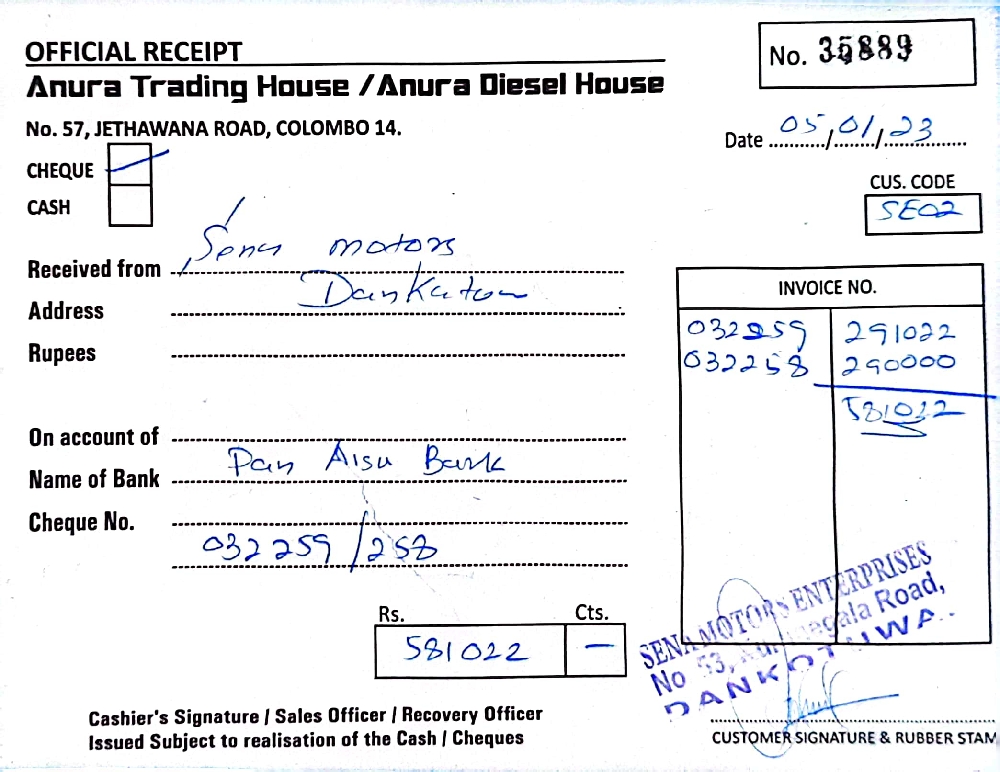 OFFICIAL RECEIPT
No. 35889
Anura Trading House / Anura Diesel House
No. 57, JETHAWANA ROAD, COLOMBO 14.
Date 05/01/23
CHEQUE
CASH
CUS. CODE
SE02
Received from Sena motors
Address Dankatow
Rupees
INVOICE NO.
032259 291022
032258 290000
581022
On account of
Name of Bank Pan Aisa Bank
Cheque No.
032259/258
Rs. Cts.
581022 —
SENA MOTORS ENTERPRISES
No 53, Road,
DANKOTUWA.
Cashier's Signature / Sales Officer / Recovery Officer
Issued Subject to realisation of the Cash / Cheques
CUSTOMER SIGNATURE & RUBBER STAM